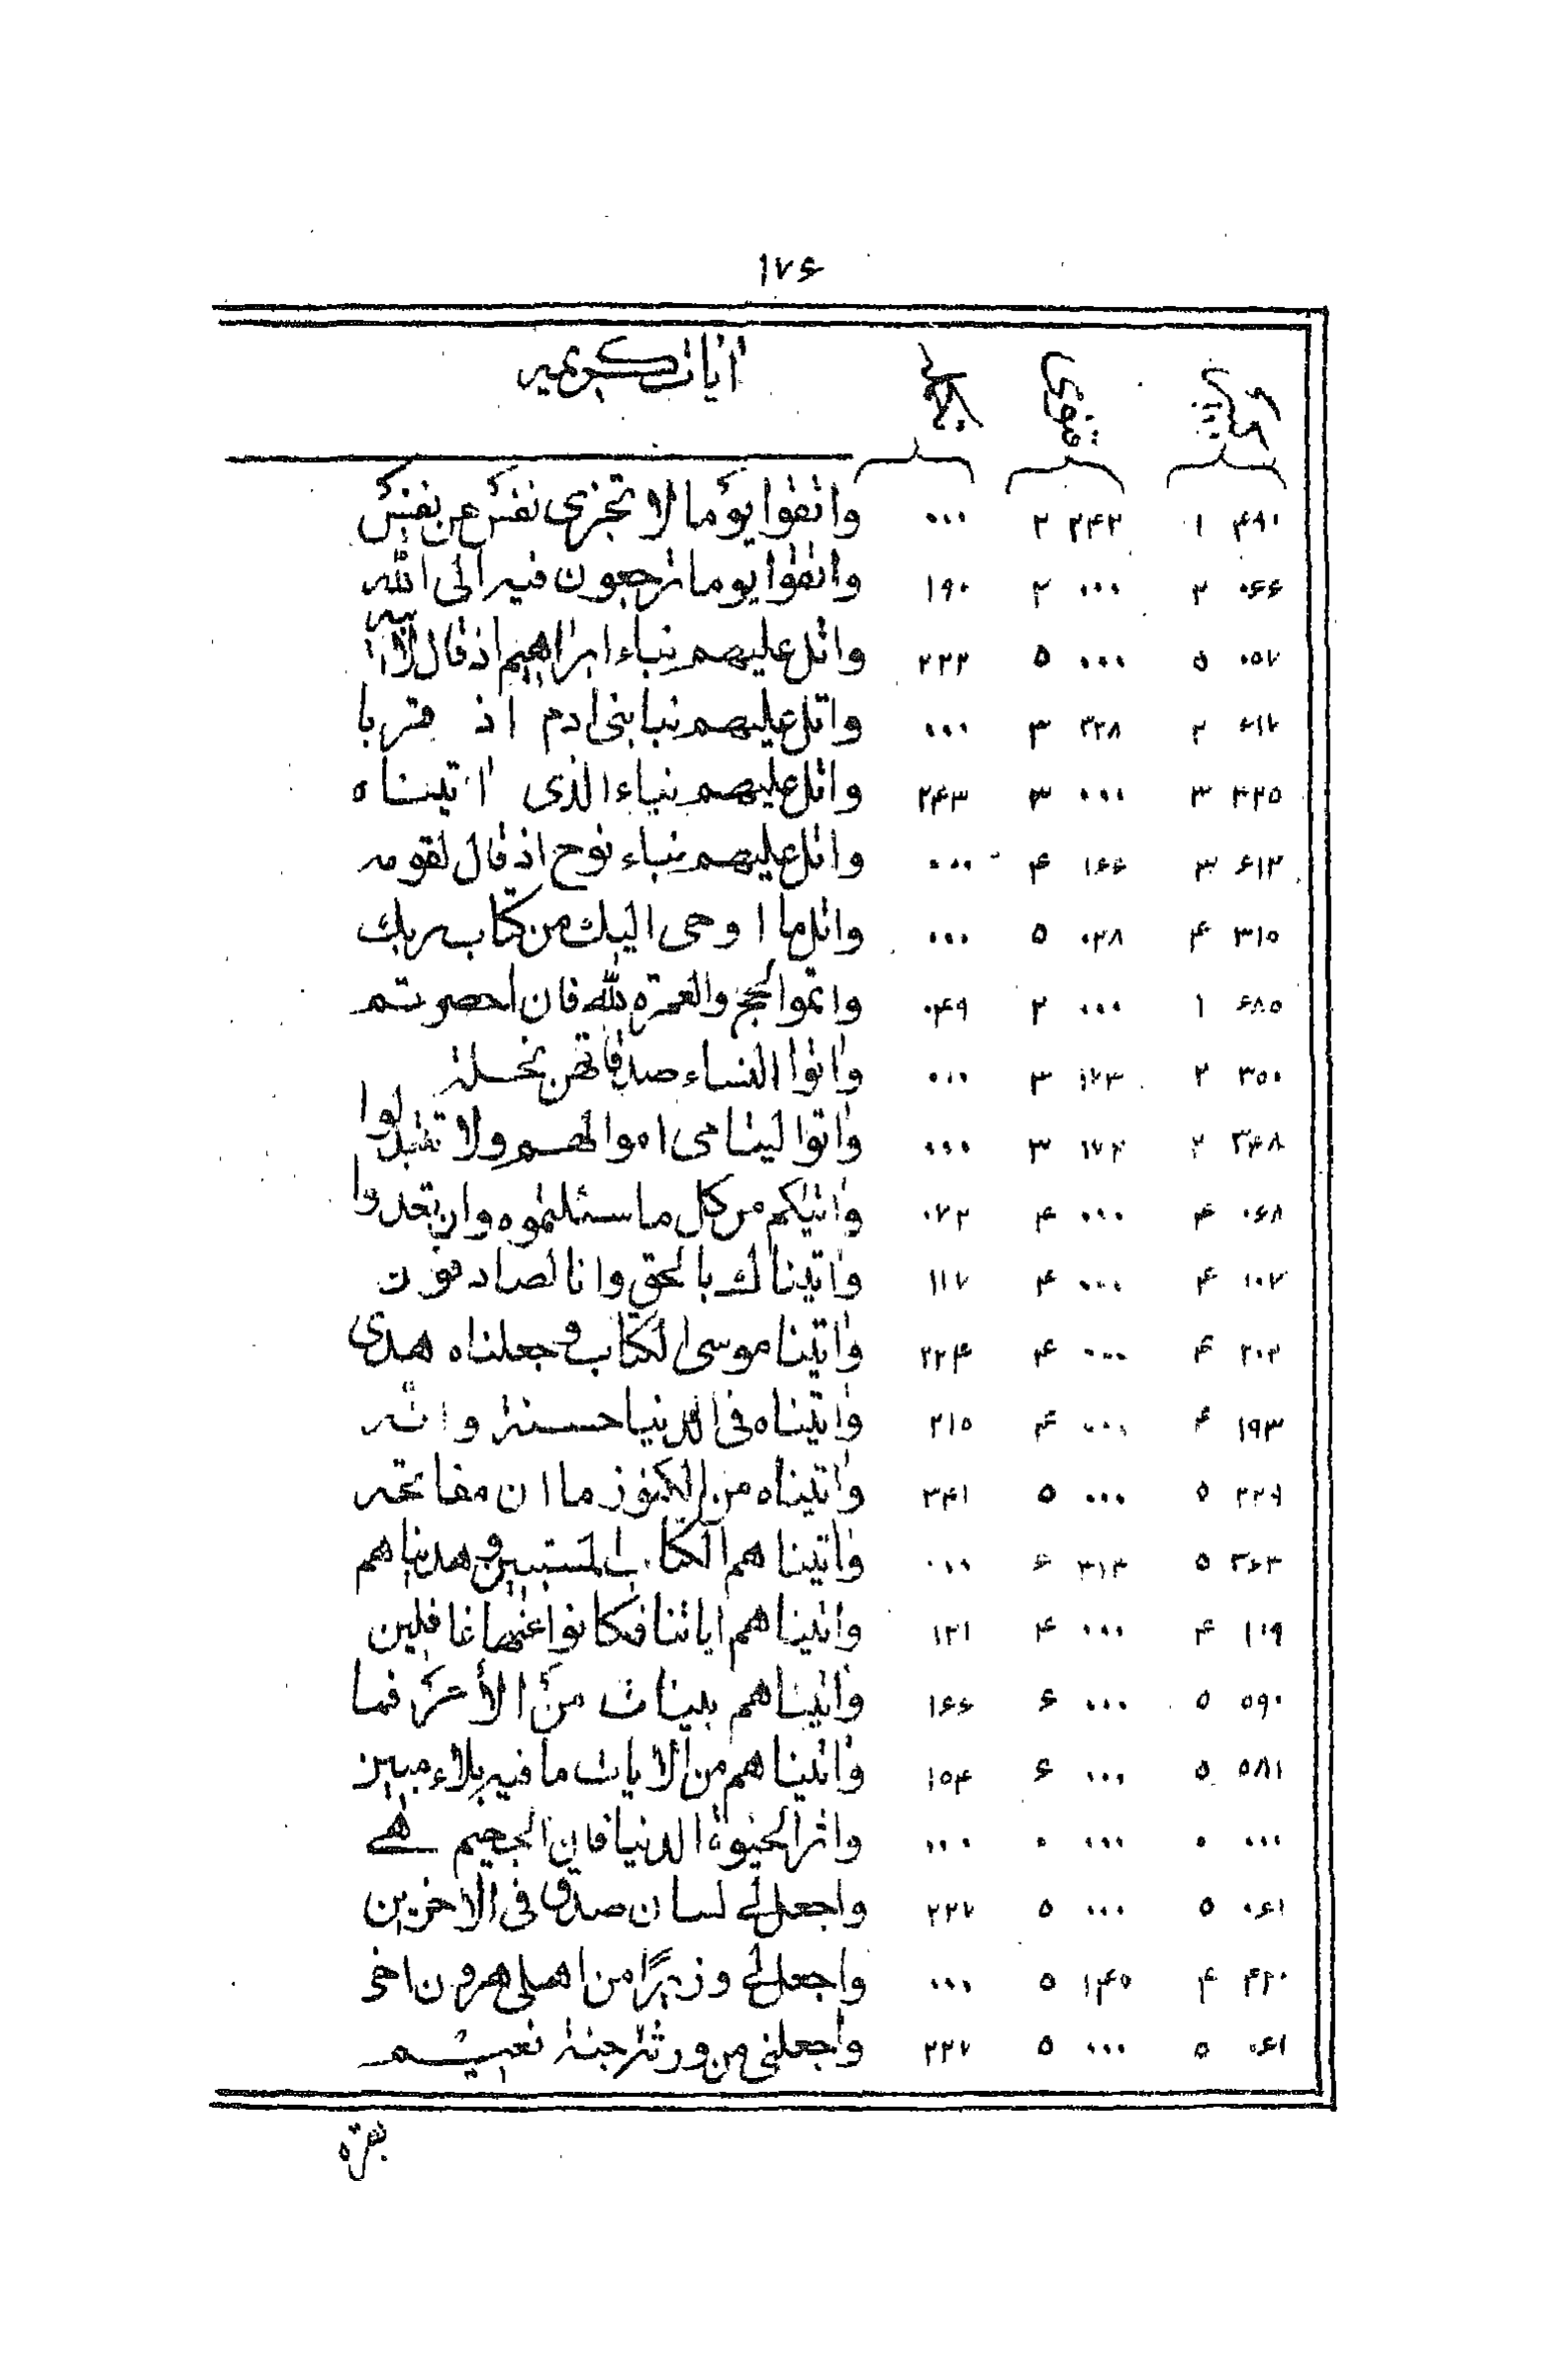 ۱۷۶
آیات کریمه
۴۹۰ ۱ ۲۴۲ ۲ ۰۰۰ واتقوا یوما لا تجزی نفس عن نفس
۰۶۶ ۲ ۰۰۰ ۲ ۱۹۰ واتقوا یوما ترجعون فیه الی الله
۰۵۷ ۵ ۰۰۰ ۵ ۲۲۲ واتل علیهم نباء ابراهیم اذ قال لابیه
۶۱۷ ۲ ۲۲۸ ۳ ۰۰۰ واتل علیهم نبا بنی ادم اذ قربا
۳۲۵ ۳ ۰۰۰ ۳ ۲۴۳ واتل علیهم نباء الذی اتیناه
۶۱۲ ۳ ۱۶۶ ۴ ۰۰۰ واتل علیهم نباء نوح اذ قال لقومه
۳۱۵ ۴ ۰۲۸ ۵ ۰۰۰ واتل ما اوحی الیک من کتاب ربک
۶۸۵ ۱ ۰۰۰ ۲ ۰۴۹ واتموا الحج والعمرة لله فان احصرتم
۳۵۰ ۲ ۱۷۳ ۳ ۰۰۰ واتوا النساء صدقاتهن نحلة
۳۴۸ ۲ ۱۷۲ ۳ ۰۰۰ واتوا الیتامی اموالهم ولا تتبدلوا
۰۶۸ ۴ ۰۰۰ ۴ ۰۷۲ واتیکم من کل ما سئلتموه وان تعدوا
۱۰۷ ۴ ۰۰۰ ۴ ۱۱۷ واتیناک بالحق وانا لصادقون
۲۰۲ ۴ ۰۰۰ ۴ ۲۲۴ واتینا موسی الکتاب وجعلناه هدی
۱۹۳ ۴ ۰۰۰ ۴ ۲۱۵ واتیناه فی الدنیا حسنة وانه
۲۲۹ ۵ ۰۰۰ ۵ ۳۴۱ واتیناه من الکنوز ما ان مفاتحه
۳۶۳ ۵ ۳۱۳ ۶ ۰۰۰ واتیناهما الکتاب المستبین وهدیناهم
۱۰۹ ۴ ۰۰۰ ۴ ۱۲۱ واتیناهم ایاتنا فکانوا عنها غافلین
۵۹۰ ۵ ۰۰۰ ۶ ۱۶۶ واتیناهم بینات من الأمر فما
۵۸۱ ۵ ۰۰۰ ۶ ۱۵۴ واتیناهم من الایات ما فیه بلاء مبین
۰۰۰ ۰ ۰۰۰ ۰ ۰۰۰ واثر الحیوة الدنیا فان الجحیم هی
۰۶۱ ۵ ۰۰۰ ۵ ۲۲۷ واجعل لی لسان صدق فی الاخرین
۴۲۰ ۴ ۱۴۵ ۵ ۰۰۰ واجعل لی وزیرًا من اهلی هرون اخی
۰۶۱ ۵ ۰۰۰ ۵ ۲۲۷ واجعلنی من ورثة جنة نعیم